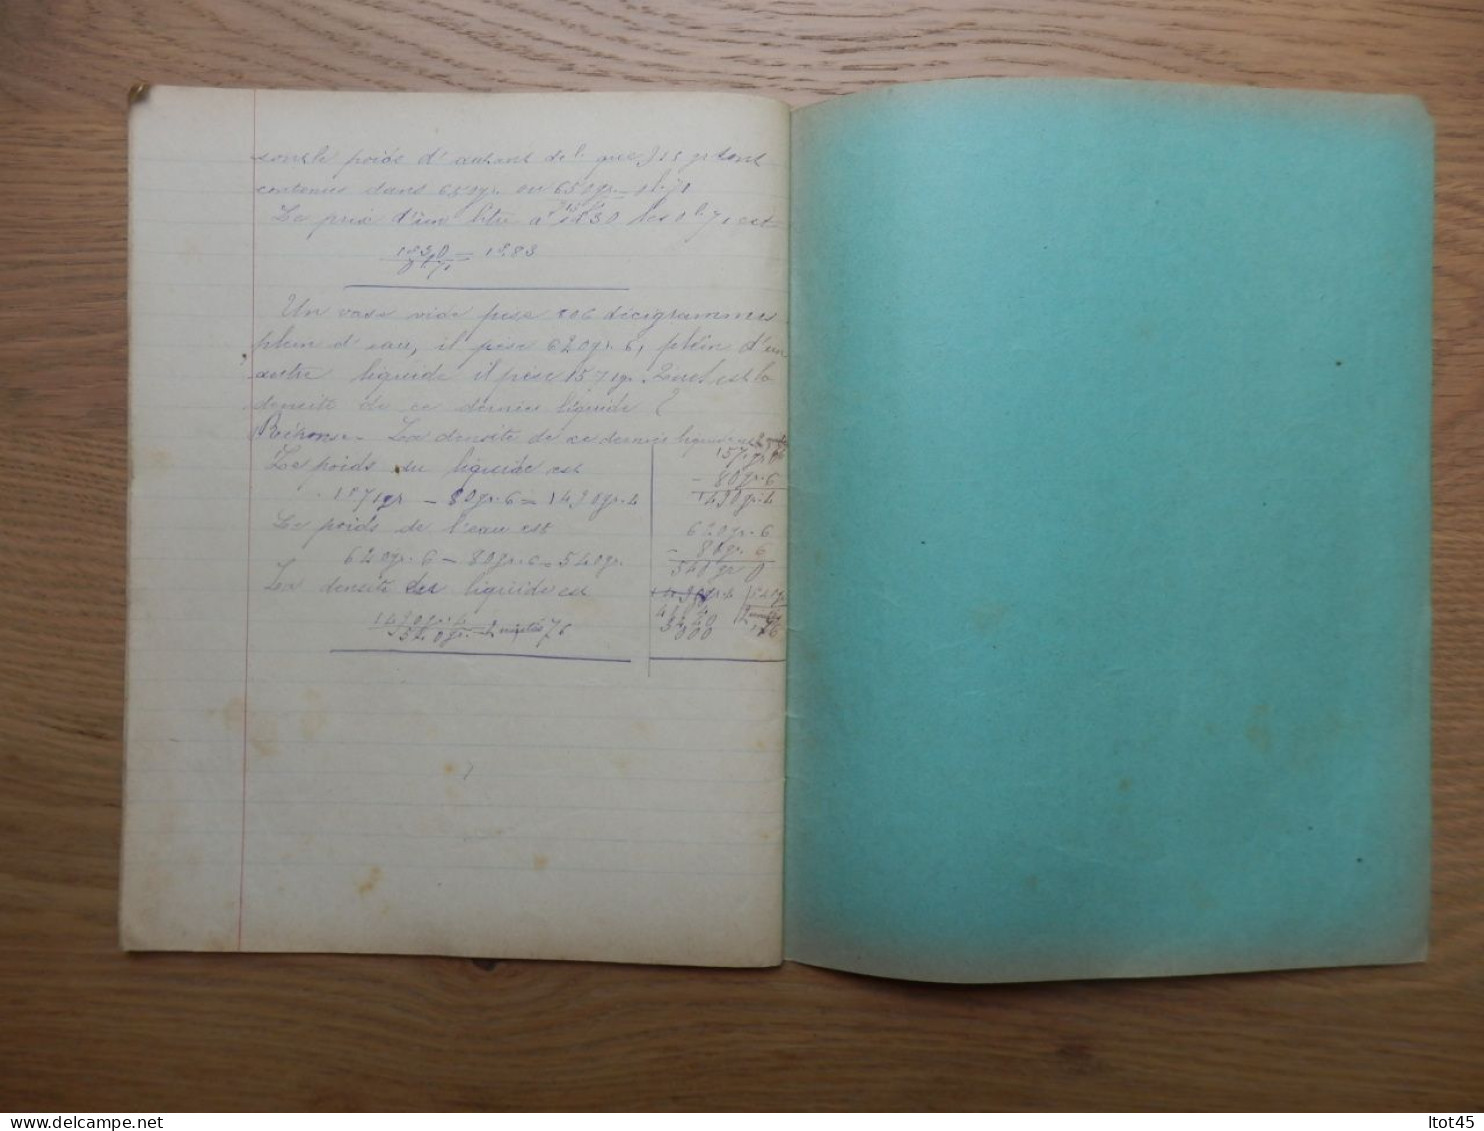 sont le poids d'autant de l. que 915 gr sont
contenus dans 650gr. ou 650gr. = 0l.71
915
Le prix d'un litre à 1f30 les 0l.71 est
1f30 = 1f.83
0l.71
Un vase vide pèse 806 décigrammes
plein d'eau, il pèse 620gr.6, plein d'un
autre liquide il pèse 1571gr. Quel est la
densité de ce dernier liquide ?
Réponse - La densité de ce dernier liquide est
Le poids du liquide est
1571gr - 80gr.6 = 1490gr.4
Le poids de l'eau est
620gr.6 - 80gr.6 = 540gr.
La densité du liquide est
1490gr.4 = 2 unités 76
540gr.
1571gr 0
- 80gr.6
1490gr.4
620gr.6
- 80gr.6
540gr 0
1490gr.4 540gr
000 76
ltot45
delcampe.net